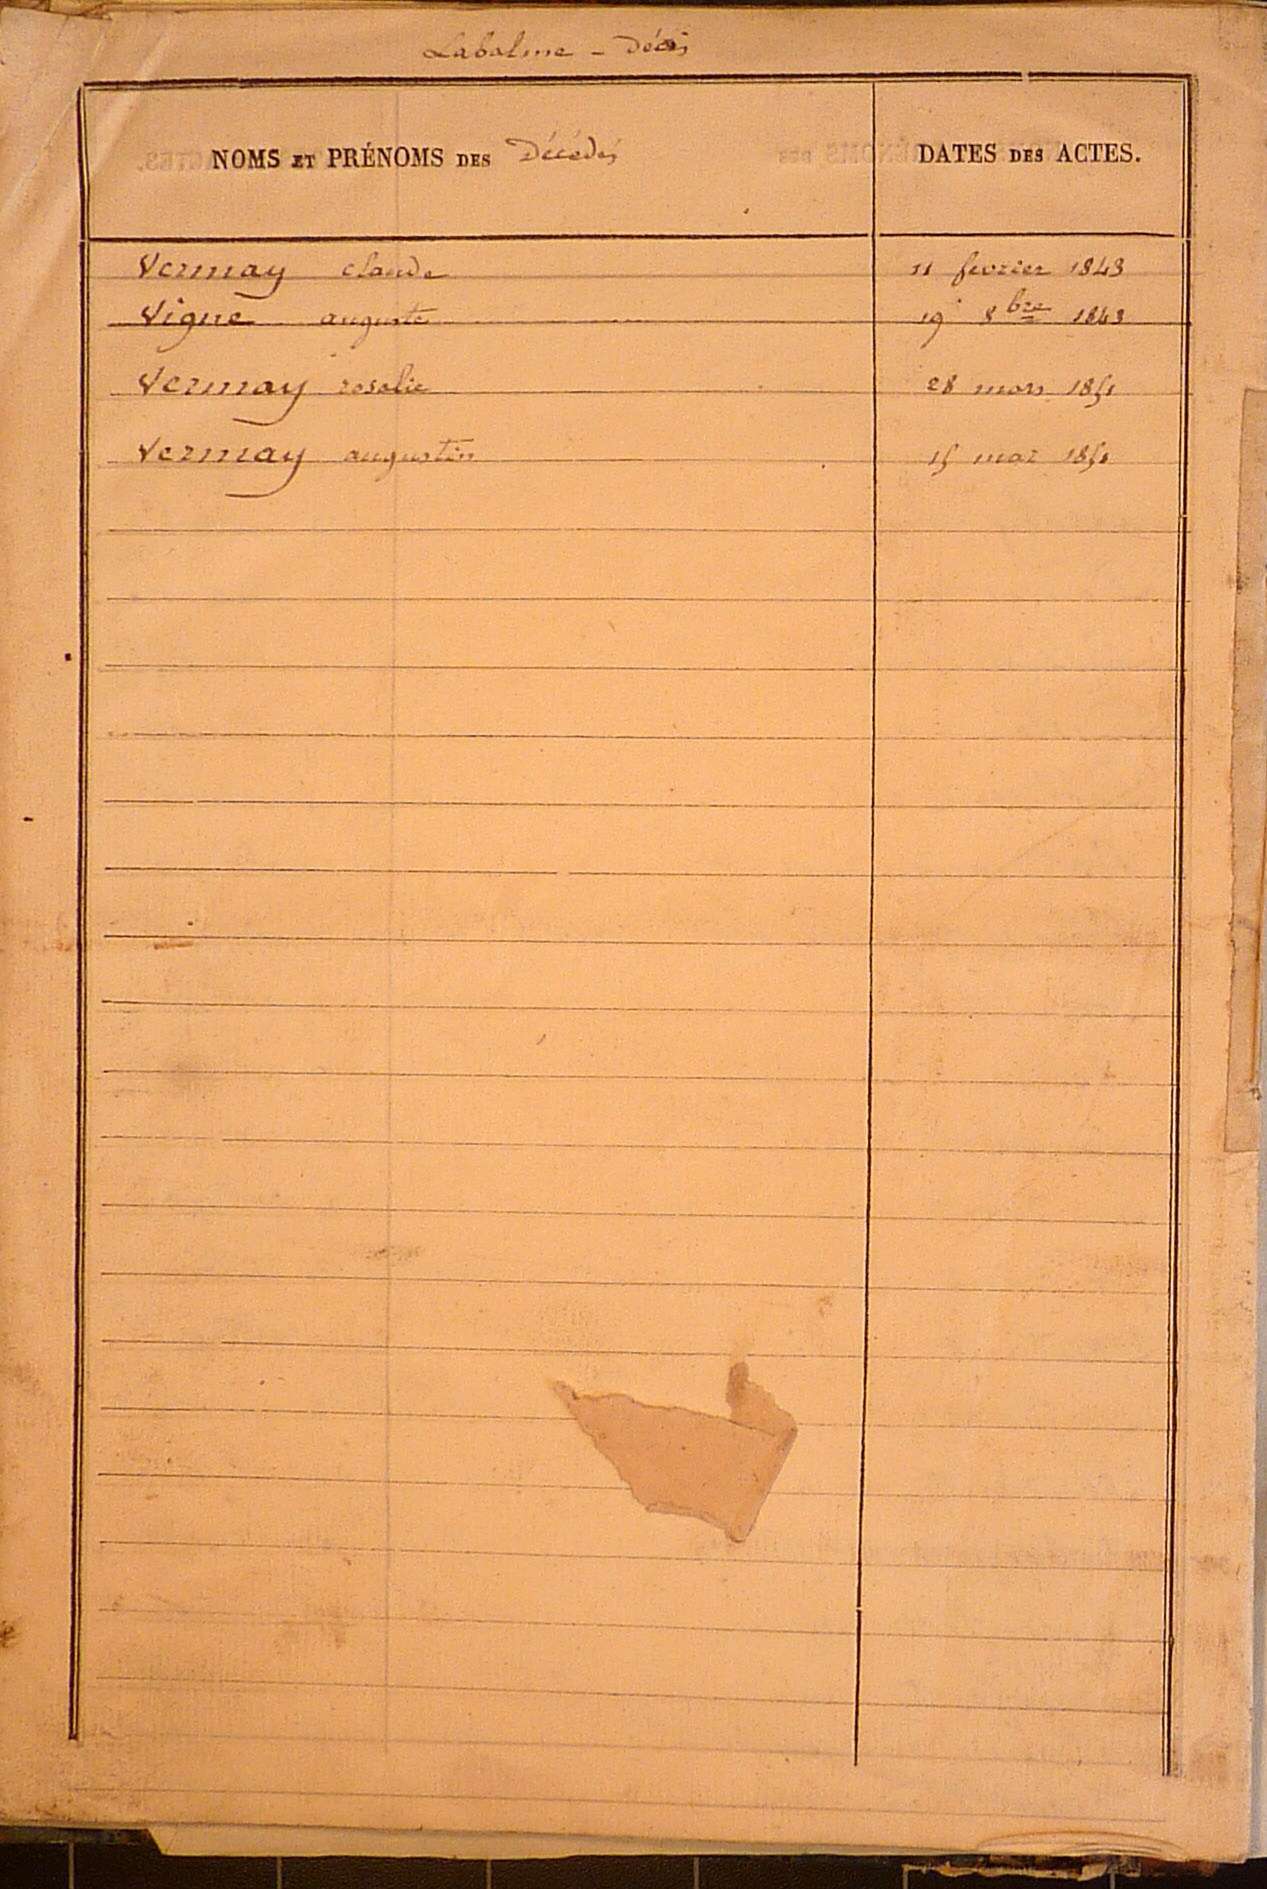 Labalme - Décès
NOMS ET PRÉNOMS DES Décédés
DATES DES ACTES.
Vermay claude 11 fevrier 1843
Vigne auguste 19 8bre 1843
Vermay rosalie 28 mars 1851
Vermay augustin 15 mai 1851